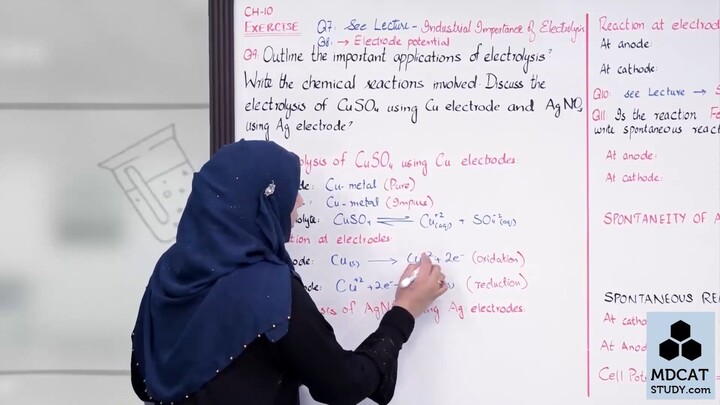 CH-10
EXERCISE Q7: See Lecture - Industrial Importance of Electrolysis
Q8: → Electrode potential
Q9: Outline the important applications of electrolysis?
Write the chemical reactions involved. Discuss the
electrolysis of CuSO₄ using Cu electrode and AgNO₃
using Ag electrode?
lysis of CuSO₄ using Cu electrodes:
de: Cu-metal (Pure)
: Cu-metal (Impure)
lyte: CuSO₄ ⇌ Cu⁺²(aq) + SO₄⁻²(aq)
tion at electrodes
ode: Cu(s) → + 2e⁻ (oxidation)
de: Cu⁺² + 2e⁻ (reduction)
sis of AgN ng Ag electrodes:
Reaction at electrod
At anode:
At cathode:
Q10: see Lecture →
Q11 Is the reaction Fe
write spontaneous react
At anode:
At cathode:
SPONTANEITY OF
SPONTANEOUS RE
At catho
At Anod
Cell Pot
MDCAT
STUDY.com